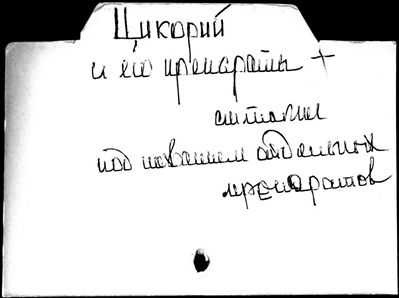 Цикорий
и его препараты +
см также
под названием отдельных
препаратов